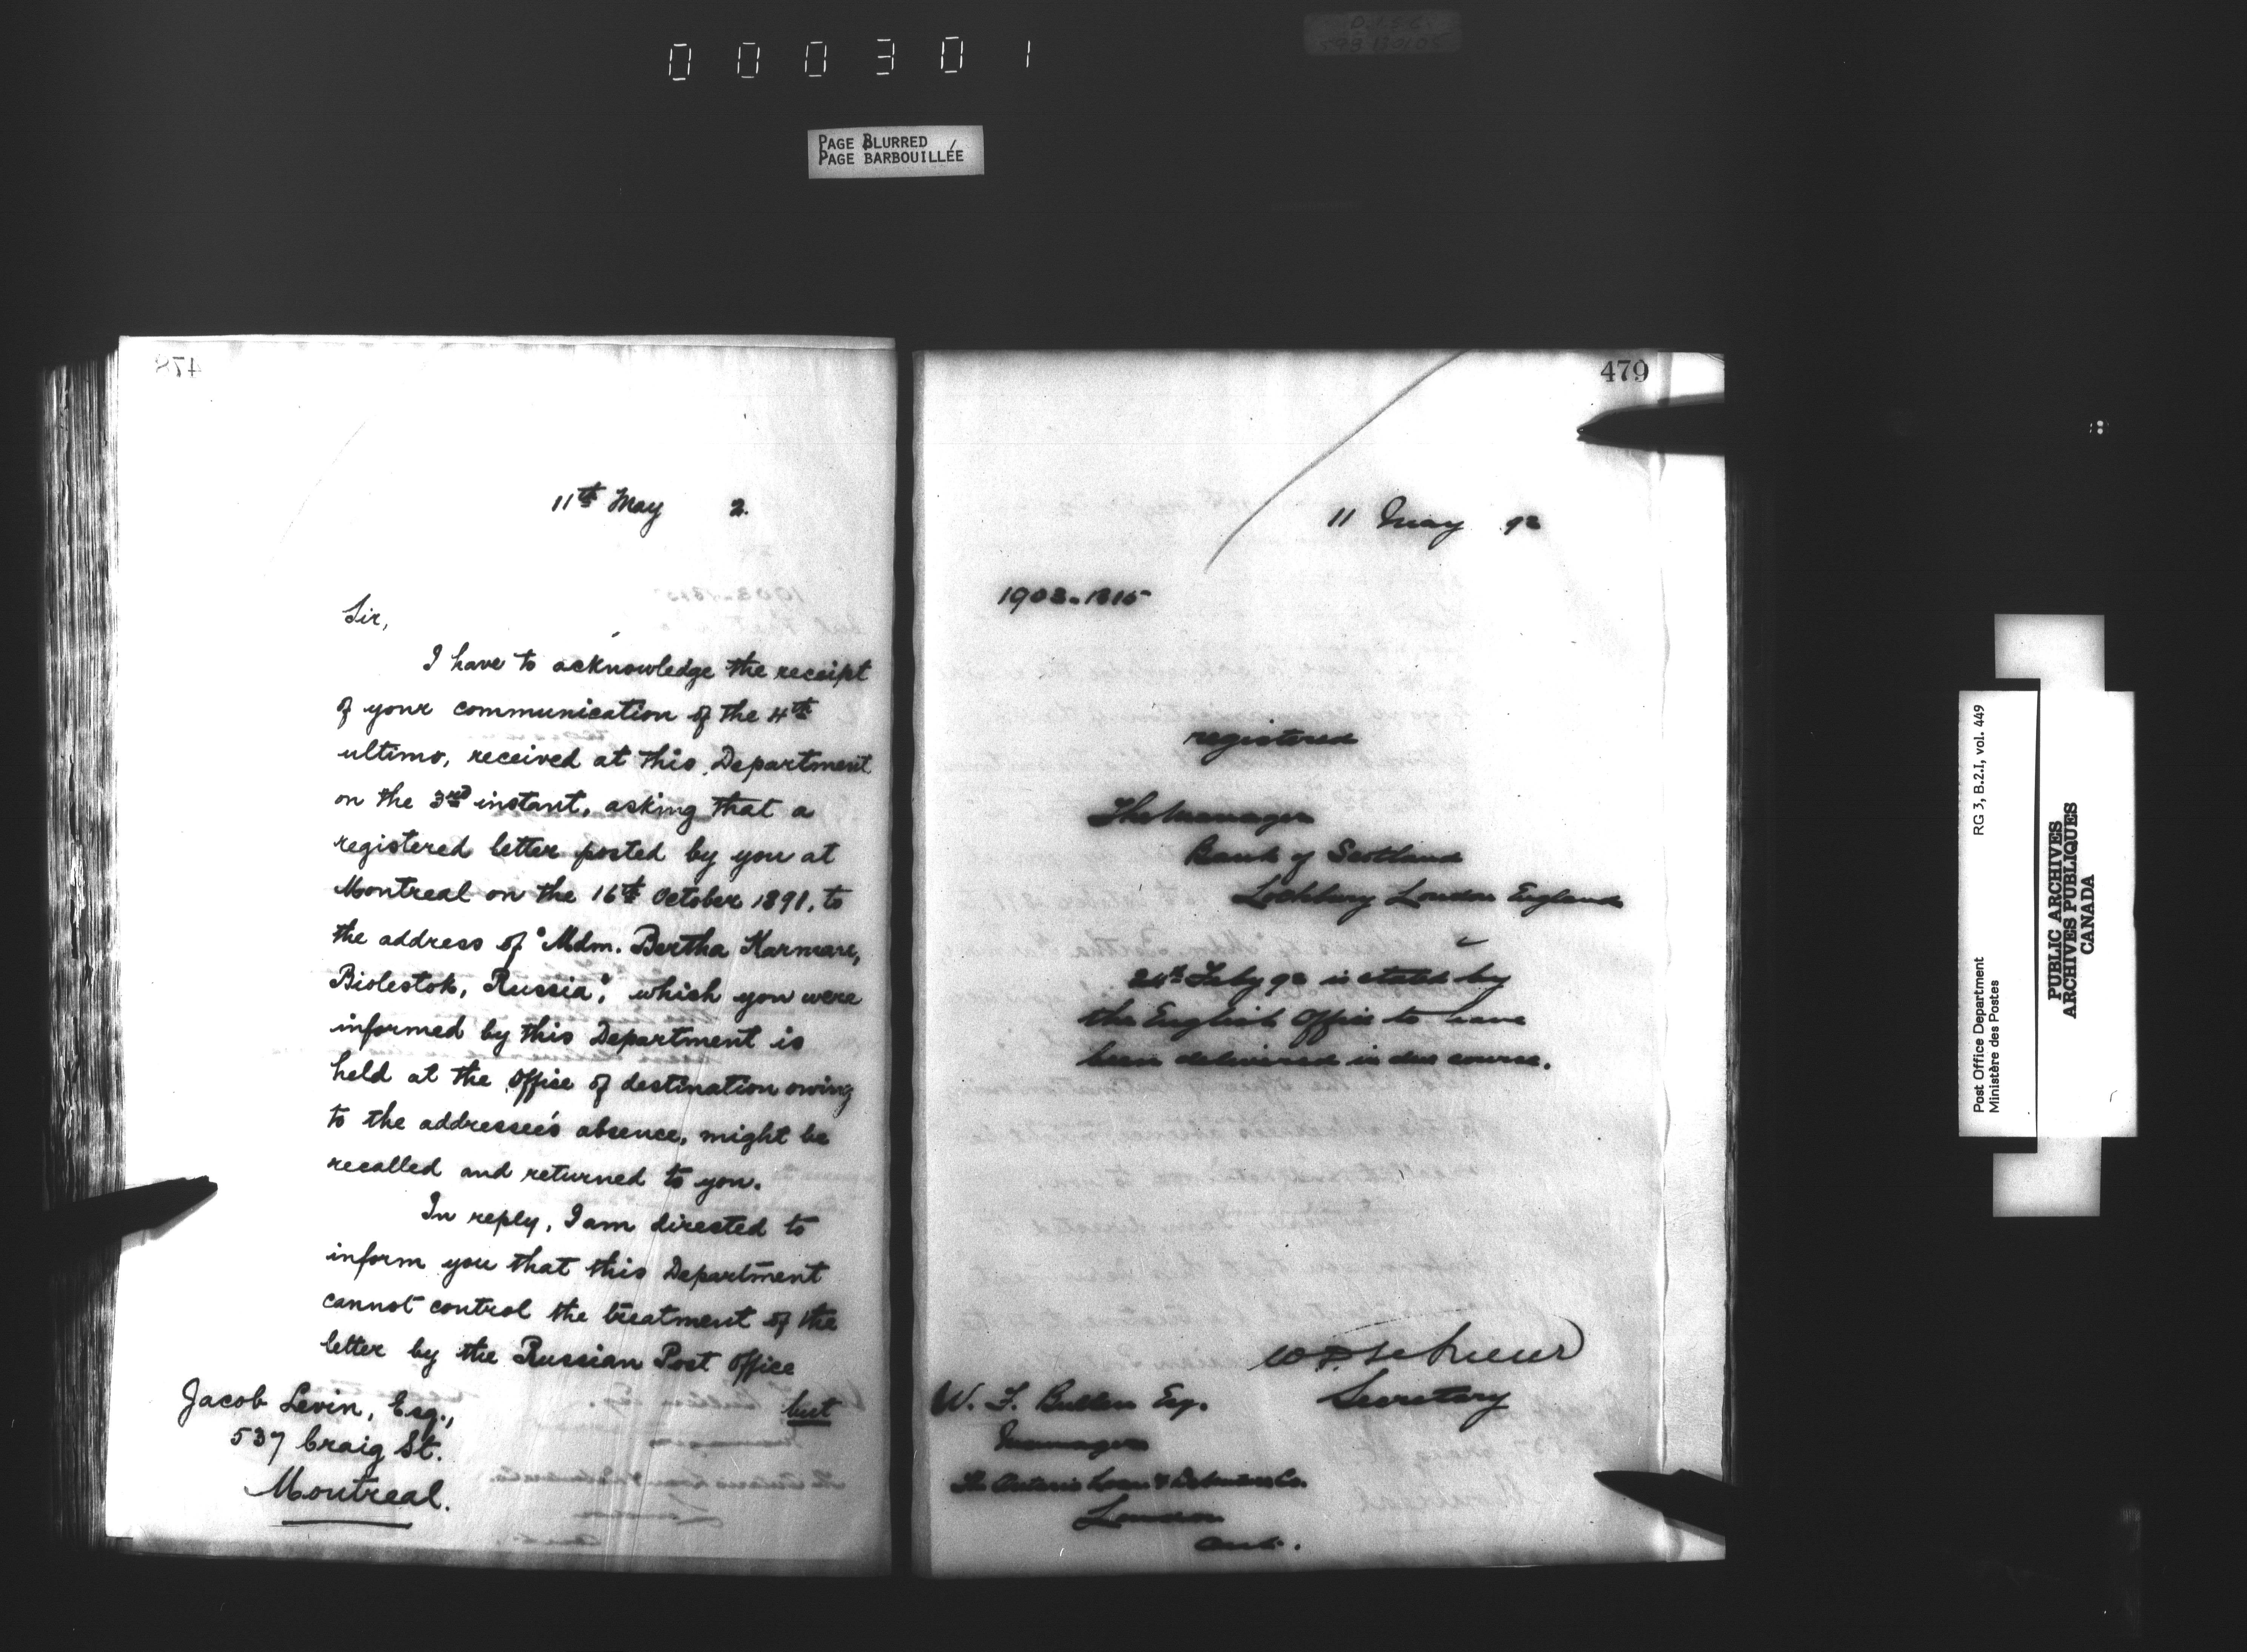 000301
PAGE BLURRED
PAGE BARBOUILLÉE
478
11th May 2.
Sir,
I have to acknowledge the receipt
of your communication of the 4th
ultimo, received at this Department
on the 3rd instant, asking that a
registered letter posted by you at
Montreal on the 16th October 1891, to
the address of "Mdm. Bertha Karmare,
Biolestok, Russia", which you were
informed by this Department is
held at the Office of destination owing
to the addressee's absence, might be
recalled and returned to you.
In reply, I am directed to
inform you that this Department
cannot control the treatment of the
letter by the Russian Post Office
but
Jacob Levin, Esq.,
537 Craig St.
Montreal.
479
11 May 92
1903-1815
registered
The Manager
Bank of Scotland
Lothbury London England
24th Feby 92 is stated by
the English Office to have
been delivered in due course.
Secretary
W. F. Bullen Esq.
Manager
The Ontario Loan & Debenture Co.
London
Ont.
Post Office Department
Ministère des Postes
RG 3, B.2.I, vol. 449
PUBLIC ARCHIVES
ARCHIVES PUBLIQUES
CANADA